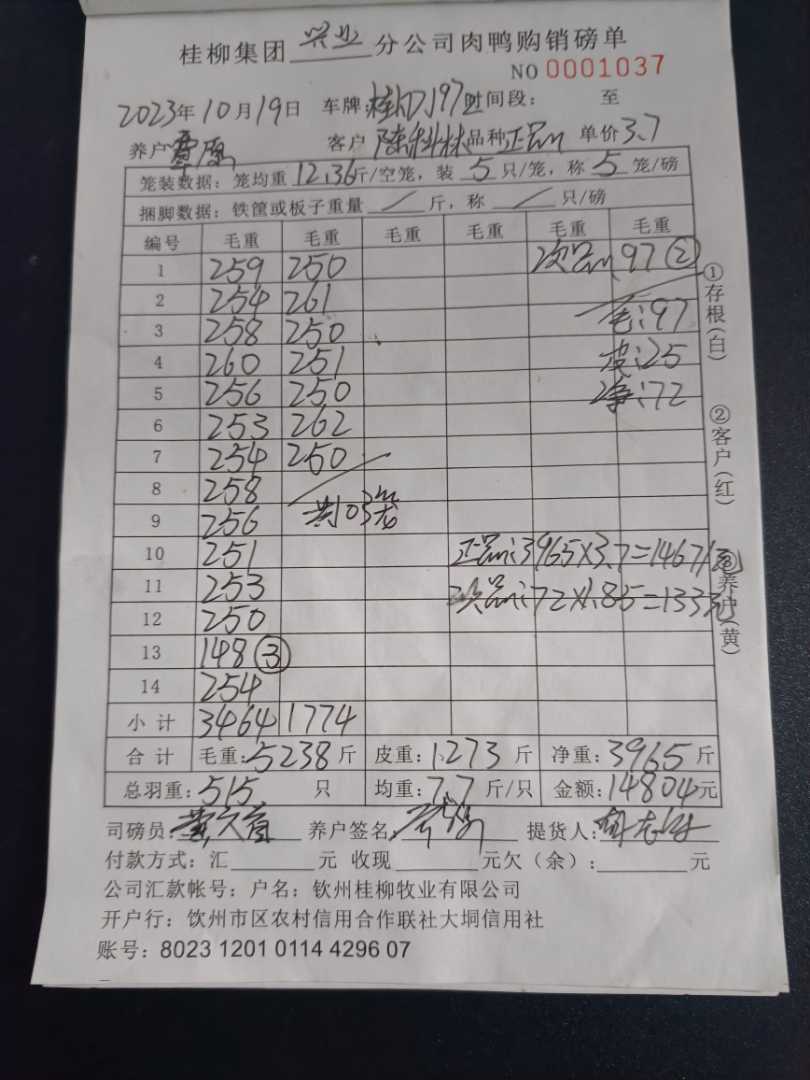 桂柳集团 兴业 分公司肉鸭购销磅单
NO 0001037
2023年10月19日 车牌: 197 时间段: 至
养户 覃 客户 陈科林 品种 正品 单价 3.7
笼装数据: 笼均重 12.36 斤/空笼, 装 5 只/笼, 称 5 笼/磅
捆脚数据: 铁筐或板子重量 / 斤, 称 / 只/磅
编号 毛重 毛重 毛重 毛重 毛重 毛重
1 259 250 次品: 97 ②
2 254 261 毛: 97
3 258 250 皮: 25
4 260 251 净: 72
5 256 250
6 253 262
7 254 250
8 258
9 256 共103笼
10 251 正品: 3965×3.7=14671元
11 253 次品: 72×1.85=133元
12 250
13 148 ③
14 254
小计 3464 1774
合计 毛重: 5238 斤 皮重: 1273 斤 净重: 3965 斤
总羽重: 515 只 均重: 7.7 斤/只 金额: 14804 元
司磅员: 养户签名: 提货人:
付款方式: 汇 元 收现 元欠(余): 元
公司汇款帐号: 户名: 钦州桂柳牧业有限公司
开户行: 饮州市区农村信用合作联社大垌信用社
账号: 8023 1201 0114 4296 07
①存根(白)
②客户(红)
养户(黄)